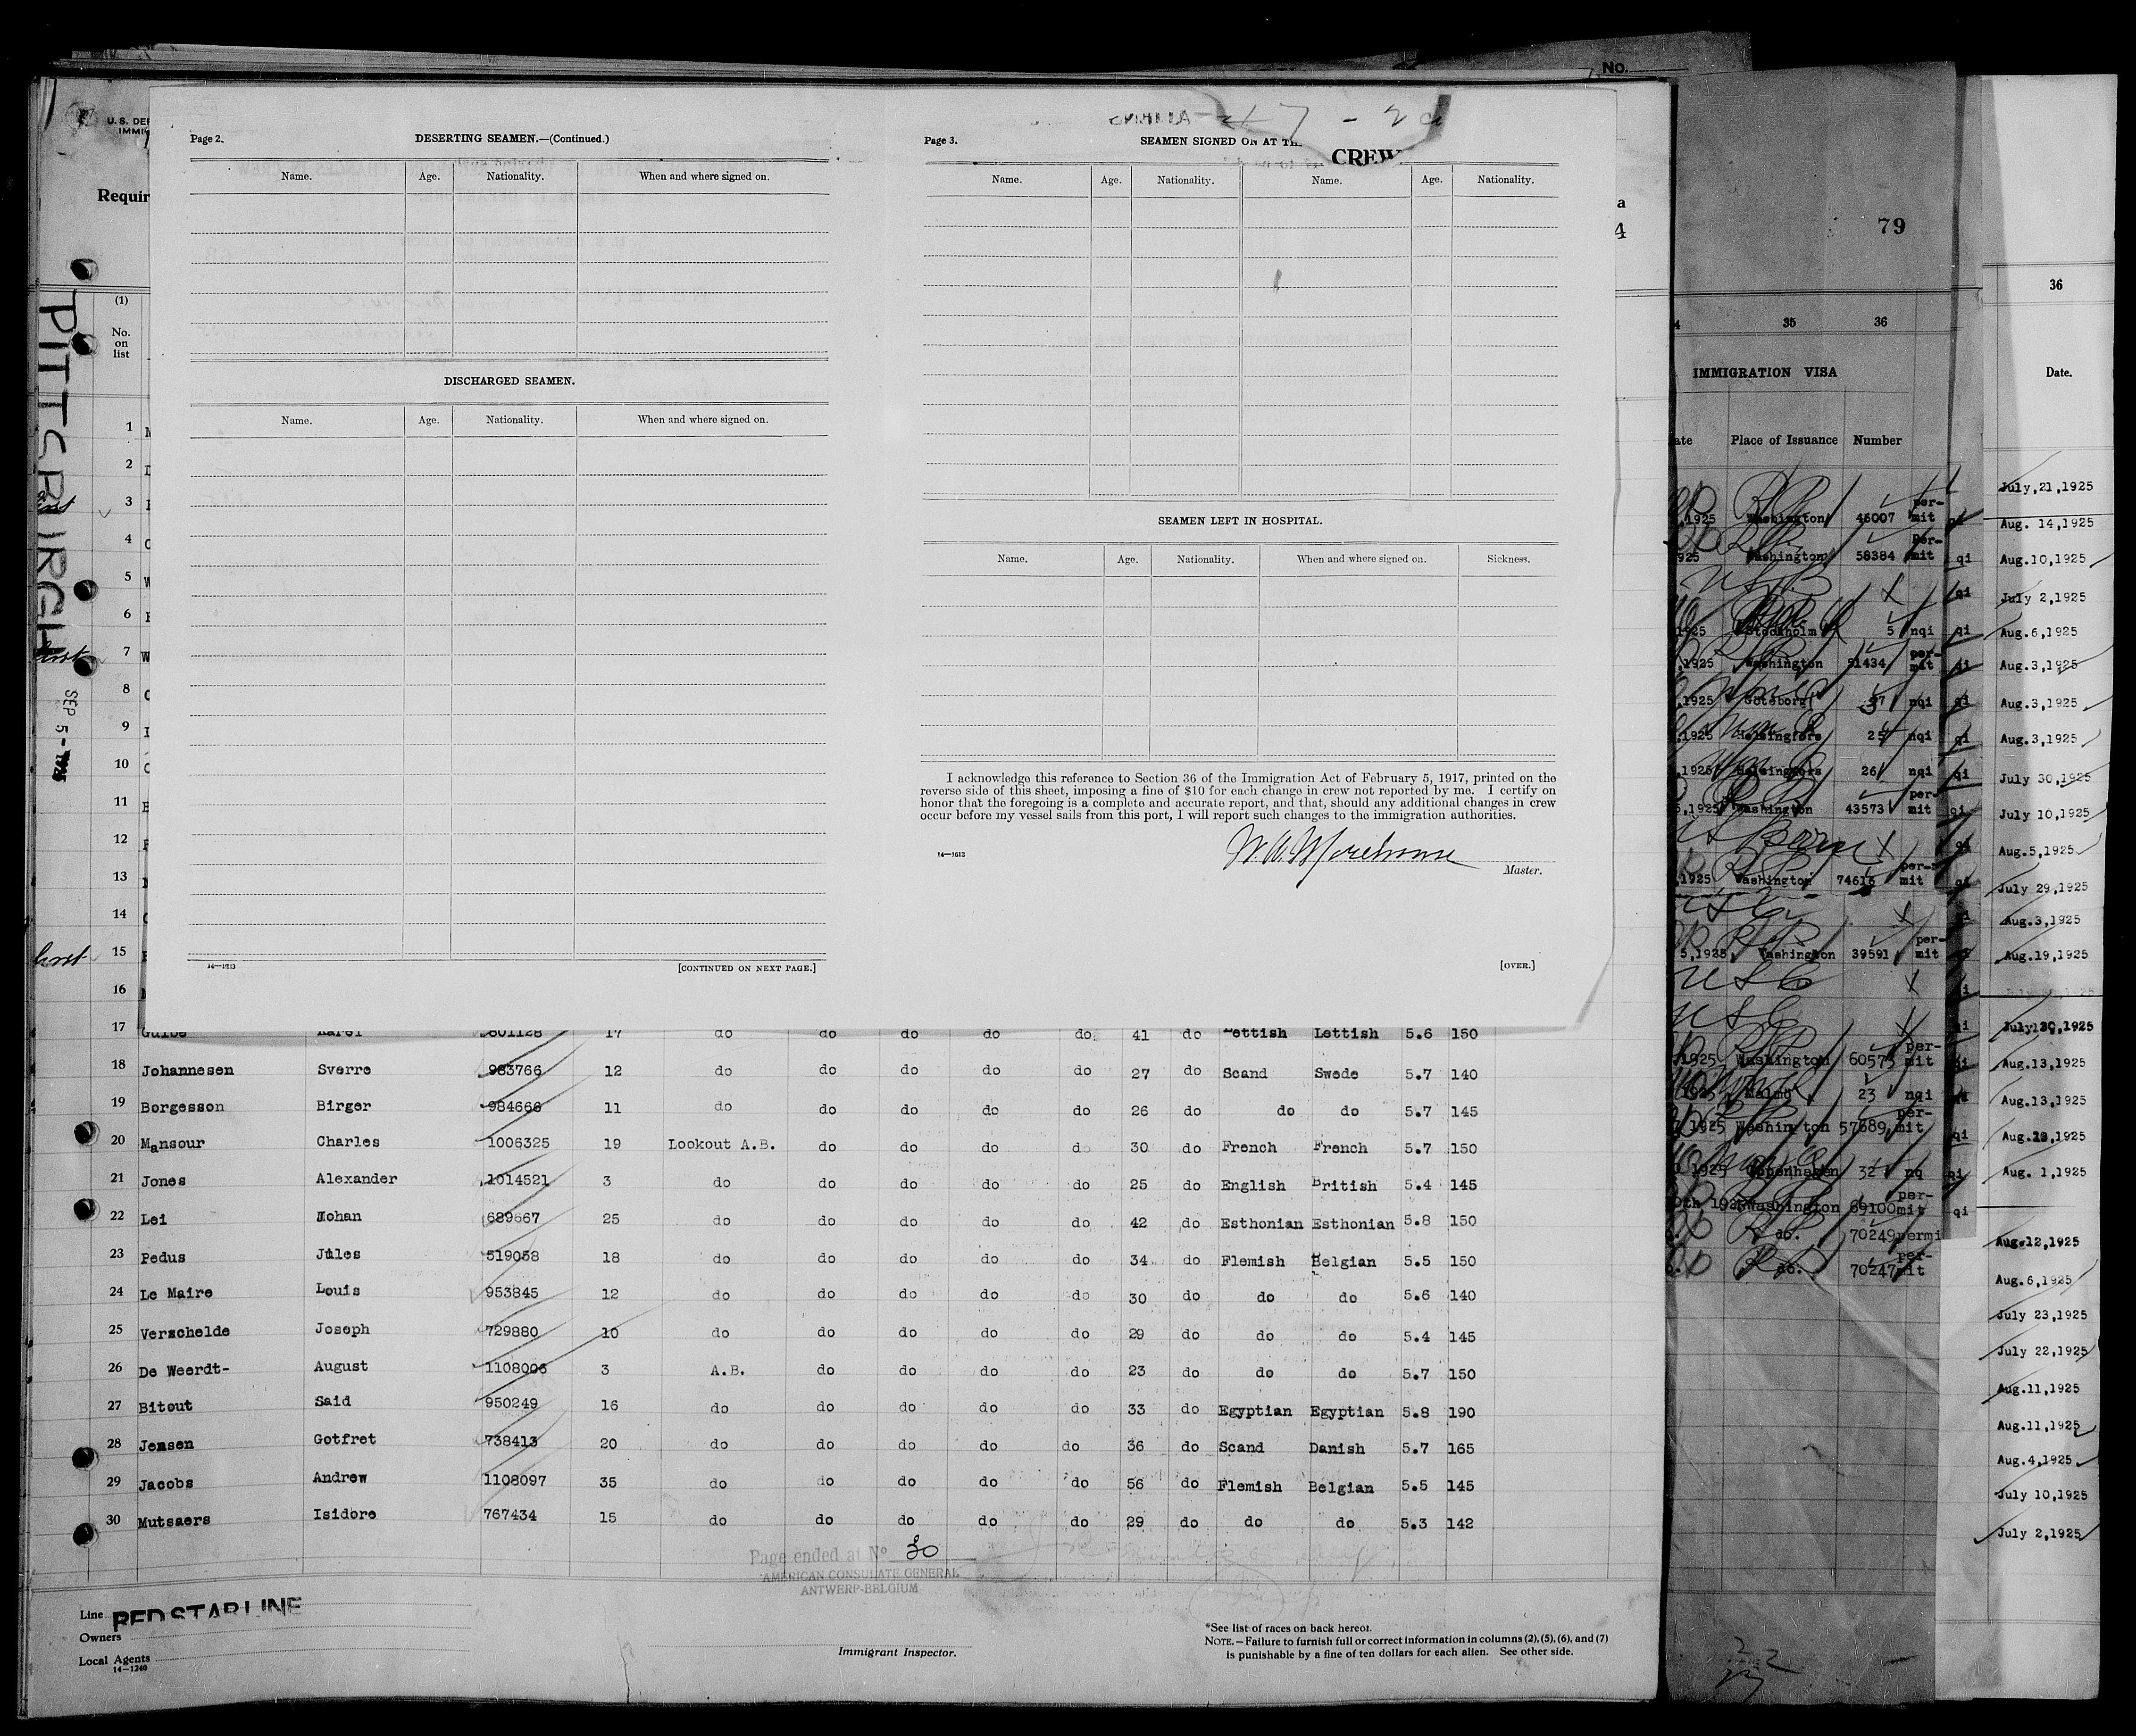 No.
U. S. DEP
IMMIG
Requir
PITTSBURGH
SEP 5 - 1925
(1)
No. on list
Page 2.
DESERTING SEAMEN.—(Continued.)
Name. Age. Nationality. When and where signed on.
DISCHARGED SEAMEN.
Name. Age. Nationality. When and where signed on.
14—1613
[CONTINUED ON NEXT PAGE.]
Page 3.
SEAMEN SIGNED ON AT TH
CREW
Name. Age. Nationality. Name. Age. Nationality.
SEAMEN LEFT IN HOSPITAL.
Name. Age. Nationality. When and where signed on. Sickness.
I acknowledge this reference to Section 36 of the Immigration Act of February 5, 1917, printed on the
reverse side of this sheet, imposing a fine of $10 for each change in crew not reported by me. I certify on
honor that the foregoing is a complete and accurate report, and that, should any additional changes in crew
occur before my vessel sails from this port, I will report such changes to the immigration authorities.
W. A. Morehouse
14—1613
Master.
[OVER.]
1
2
3
4
5
6
7
8
9
10
11
12
13
14
15
16
17 Gulbe Karel 801128 17 do do do do do 41 do Lettish Lettish 5.6 150
18 Johannesen Sverre 983766 12 do do do do do 27 do Scand Swede 5.7 140
19 Borgesson Birger 984666 11 do do do do do 26 do do do 5.7 145
20 Mansour Charles 1006325 19 Lookout A.B. do do do do 30 do French French 5.7 150
21 Jones Alexander 1014521 3 do do do do do 25 do English British 5.4 145
22 Lei Johan 689667 25 do do do do do 42 do Esthonian Esthonian 5.8 150
23 Pedus Jules 519058 18 do do do do do 34 do Flemish Belgian 5.5 150
24 Le Maire Louis 953845 12 do do do do do 30 do do do 5.6 140
25 Verschelde Joseph 729880 10 do do do do do 29 do do do 5.4 145
26 De Weerdt- August 1108006 3 A.B. do do do do 23 do do do 5.7 150
27 Bitout Said 950249 16 do do do do do 33 do Egyptian Egyptian 5.8 190
28 Jensen Gotfret 738413 20 do do do do do 36 do Scand Danish 5.7 165
29 Jacobs Andrew 1108097 35 do do do do do 56 do Flemish Belgian 5.5 145
30 Mutsaers Isidore 767434 15 do do do do do 29 do do do 5.3 142
Page ended at No 30
AMERICAN CONSULATE GENERAL
ANTWERP-BELGIUM
Line RED STAR LINE
Owners
Local Agents
14—1240
Immigrant Inspector.
*See list of races on back hereof.
NOTE.—Failure to furnish full or correct information in columns (2), (5), (6), and (7)
is punishable by a fine of ten dollars for each alien. See other side.
79
35 36
IMMIGRATION VISA
Place of Issuance Number
,1925 Washington 46007 per-mit
925 Washington 58384 per-mit
1925 Stockholm 5 nqi
,1925 Washington 51434 per-mit
,1925 Goteborg 37 nqi
,1925 Helsingfors 25 nqi
,1925 Helsingfors 26 nqi
5,1925 Washington 43573 per-mit
US Born
,1925 Washington 74616 per-mit
5,1925 Washington 39591 per-mit
USC
USC
1925 Washington 60573 per-mit
1925 Malmo 23 nqi
1925 Washington 57689 per-mit
1925 Copenhagen 32 nq
0th 1925 Washington 69100 per-mit
do. 70249 permi
do. 70247 per-mit
36
Date.
July,21,1925
Aug. 14,1925
Aug.10,1925
July 2,1925
Aug.6,1925
Aug.3,1925
Aug.3,1925
Aug.3,1925
July 30,1925
July 10,1925
Aug.5,1925
July 29,1925
Aug.3,1925
Aug.19,1925
Aug.13,1925
Aug.13,1925
Aug. 1,1925
Aug.12,1925
Aug.6,1925
July 23,1925
July 22,1925
Aug.11,1925
Aug.11,1925
Aug.4,1925
July 10,1925
July 2,1925